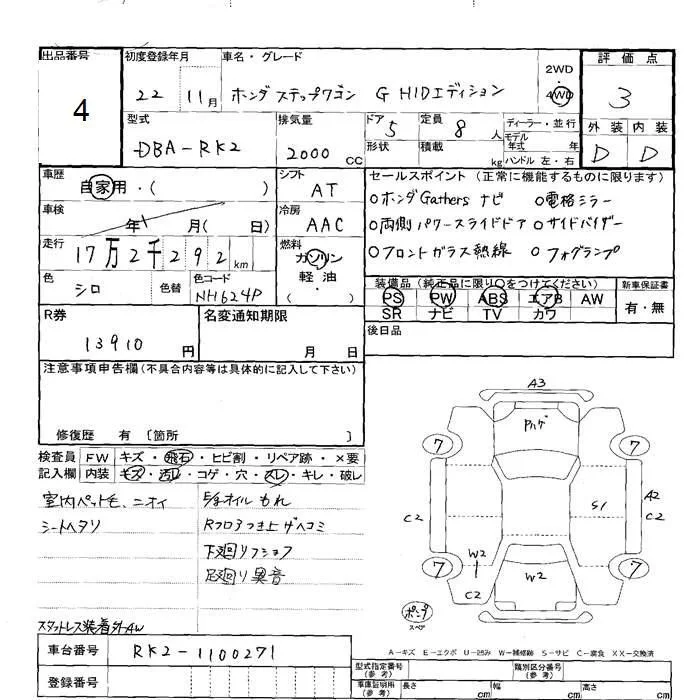 出品番号 初度登録年月 車名・グレード 評価点
4
22 11月 ホンダ ステップワゴン G HIDエディション 2WD 4WD 3
型式 排気量 ドア 定員 ディーラー・並行 外装 内装
DBA-RK2 2000cc 5 8人 モデル年式 年 D D
形状 積載 kg ハンドル 左・右
車歴 シフト セールスポイント (正常に機能するものに限ります)
自家用・( ) AT ○ホンダGathers ナビ ○電格ミラー
車検 冷房
年 月( 日) AAC ○両側パワースライドドア ○サイドバイザー
走行 燃料
17万2千292km ガソリン・軽油・( ) ○フロントガラス熱線 ○フォグランプ
色 色替 色コード 装備品 (純正品に限り○をつけてください) 新車保証書
シロ NH624P PS PW ABS エアB AW 有・無
SR ナビ TV カワ
R券 名変通知期限 後日品
13910円 月 日
注意事項申告欄(不具合内容等は具体的に記入して下さい)
修復歴 有 〔箇所 〕
検査員 FW キズ・飛石・ヒビ割・リペア跡・×要
記入欄 内装 キズ・汚レ・コゲ・穴・スレ・キレ・破レ
室内ペット毛、ニオイ
シートヘタリ
オイルもれ
Rフロアつき上ゲヘコミ
下廻り
足廻り異音
スタットレス装着 外4W
A3
7 7
C2 S1 A2
C2
W2
7 C2 W2 7
スペア
A-キズ E-エクボ U-凹み W-補修跡 S-サビ C-腐食 XX-交換済
車台番号 RK2-1100271
登録番号
型式指定番号(参考) 類別区分番号(参考)
車庫証明用(参考) 長さ cm 幅 cm 高さ cm